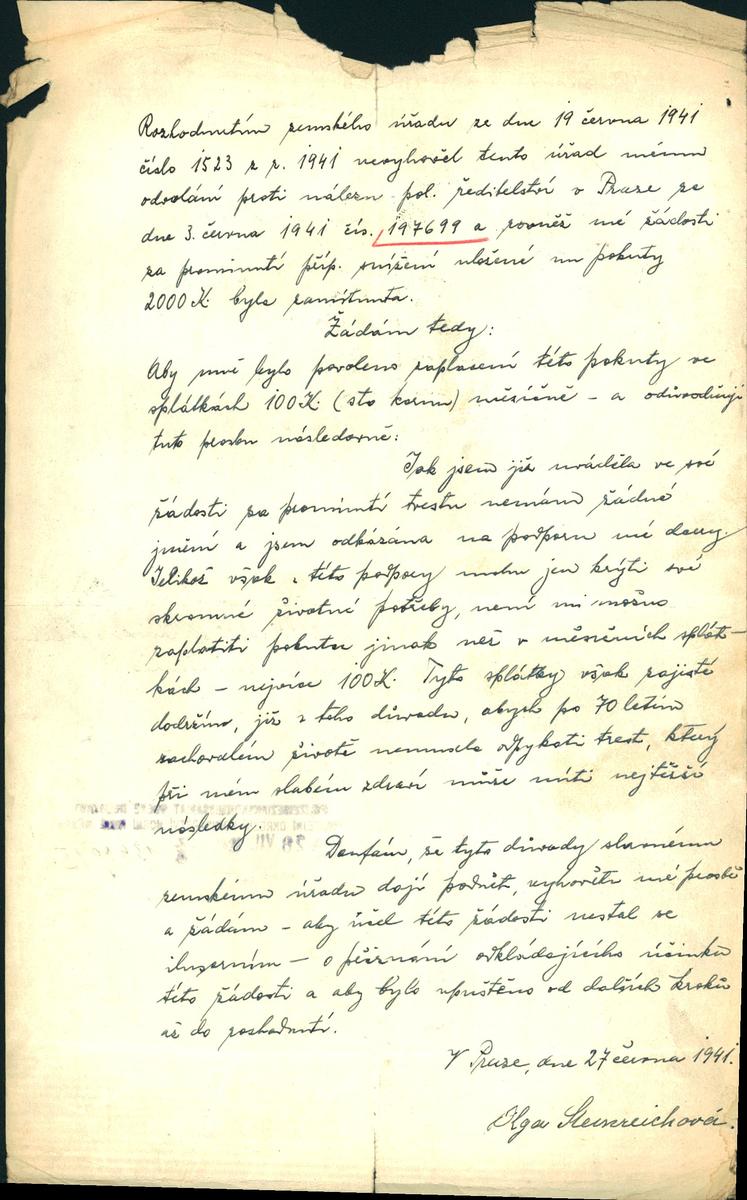 Rozhodnutím zemského úřadu ze dne 19 června 1941
číslo 1523 z r. 1941 nevyhověl tento úřad mému
odvolání proti nálezu pol. ředitelství v Praze ze
dne 3. června 1941 čís. 197699 a rovněž mé žádosti
za prominutí příp. snížení uložené mi pokuty
2000 K. byla zamítnuta.
Žádám tedy:
Aby mně bylo povoleno zaplacení této pokuty ve
splátkách 100 K. (sto korun) měsíčně – a odůvodňuji
tuto prosbu následovně:
Jak jsem již uváděla ve své
žádosti za prominutí trestu nemám žádné
jmění a jsem odkázána na podporu mé dcery.
Jelikož však z této podpory mohu jen krýti své
skromné životné potřeby, není mi možno
zaplatiti pokutu jinak než v měsíčních splát-
kách – nejvíce 100 K. Tyto splátky však zajisté
dodržím, již z toho důvodu, abych po 70 letém
zachovalém životě nemusela odpykati trest, který
při mém slabém zdraví může míti nejtěžší
následky.
Doufám, že tyto důvody slavnému
zemskému úřadu dají podnět, vyhověti mé prosbě
a žádám – aby účel této žádosti nestal se
ilusorním – o přiznání odkládajícího účinku
této žádosti a aby bylo upuštěno od dalších kroků
až do rozhodnutí.
V Praze, dne 27 června 1941.
Olga Steinreichová.